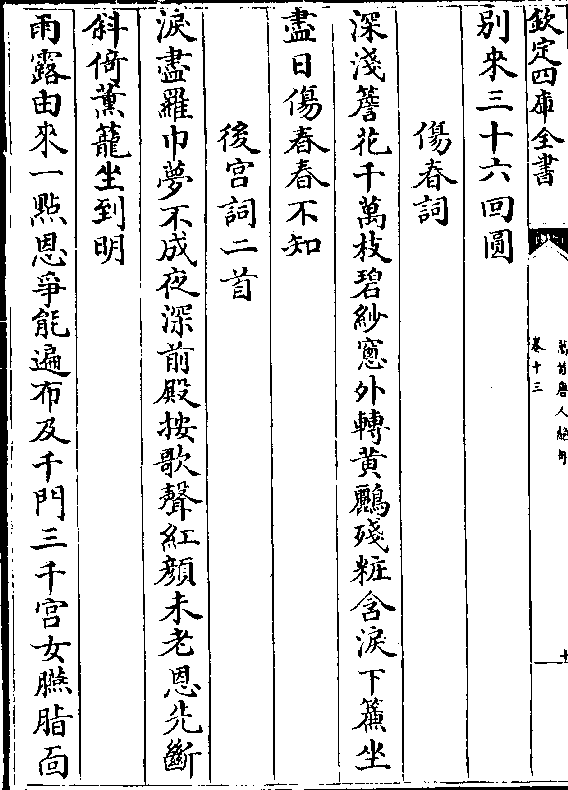 欽定四庫全書
萬首唐人絕句
卷十三
別來三十六回圓
傷春詞
深淺簷花千萬枝碧紗窻外轉黄鸝殘粧含淚下簾坐
盡日傷春春不知
後宫詞二首
淚盡羅巾夢不成夜深前殿按歌聲紅顔未老恩先斷
斜倚薰籠坐到明
雨露由來一點恩爭能遍布及千門三千宫女臙脂面